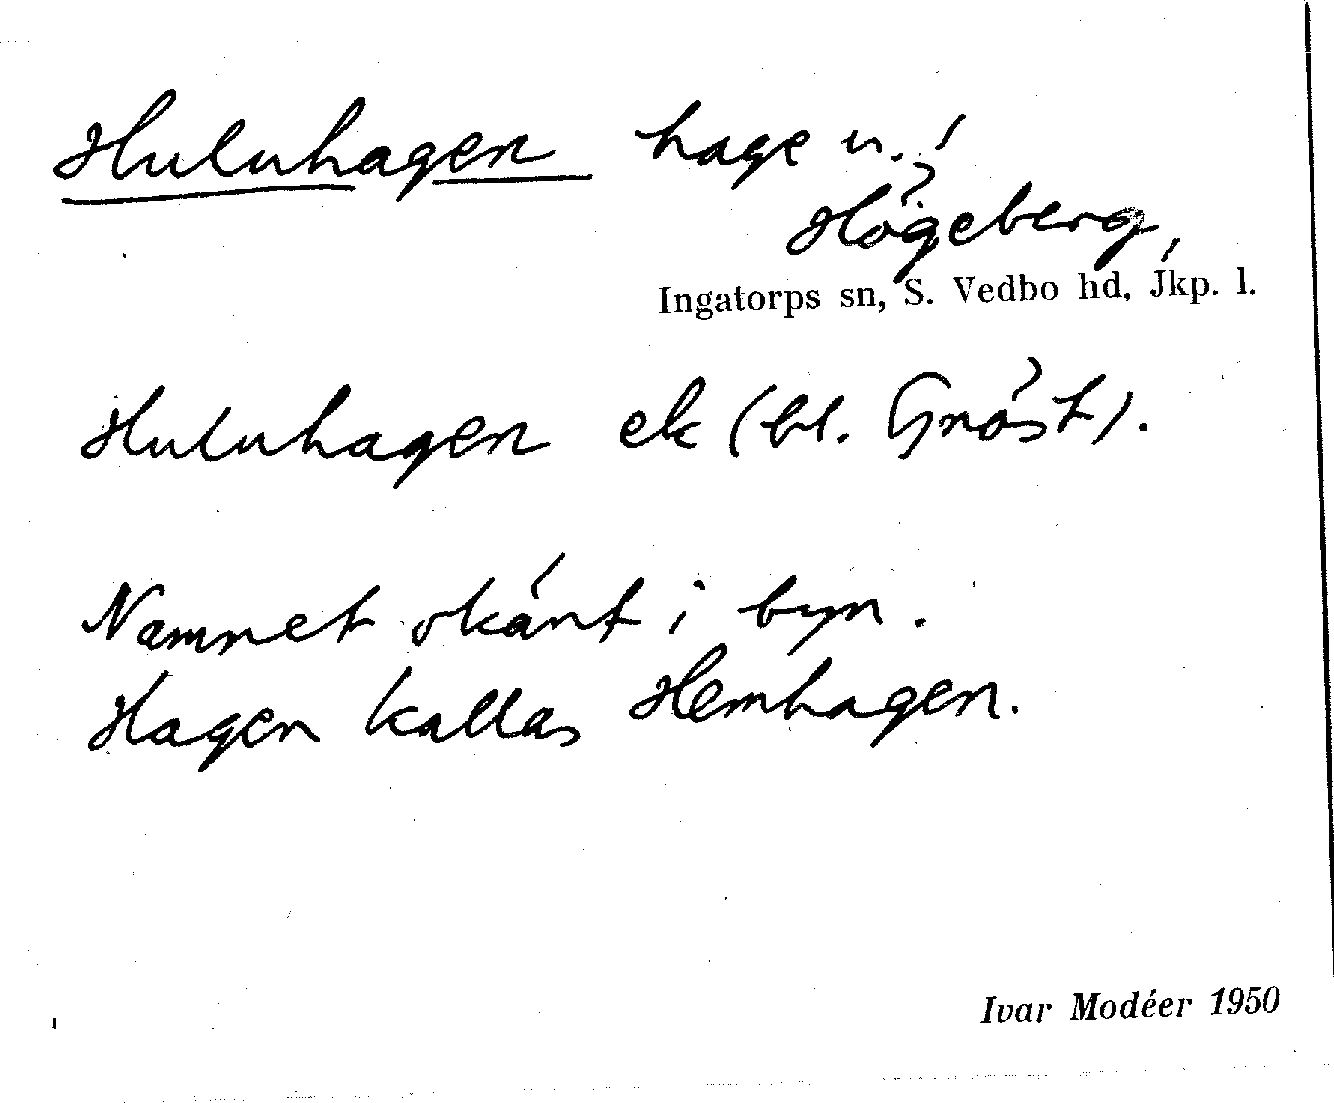 Huluhagen hage u. /
Högeberg,
Ingatorps sn, S. Vedbo hd, Jkp. l.
Huluhagen ek (bl. Gnöst).
Namnet okänt i byn.
Hagen kallas Hemhagen.
Ivar Modéer 1950